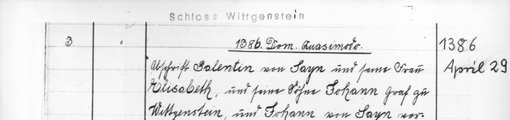 Schloss Wittgenstein
3. 1386. Dom. Quasimodo. 1386
Abschrift Salentin von Sayn und seine Frau April 29
Elisabeth, und seine Söhne Johann Graf zu
Wittgenstein, und Johann von Sayn ver-